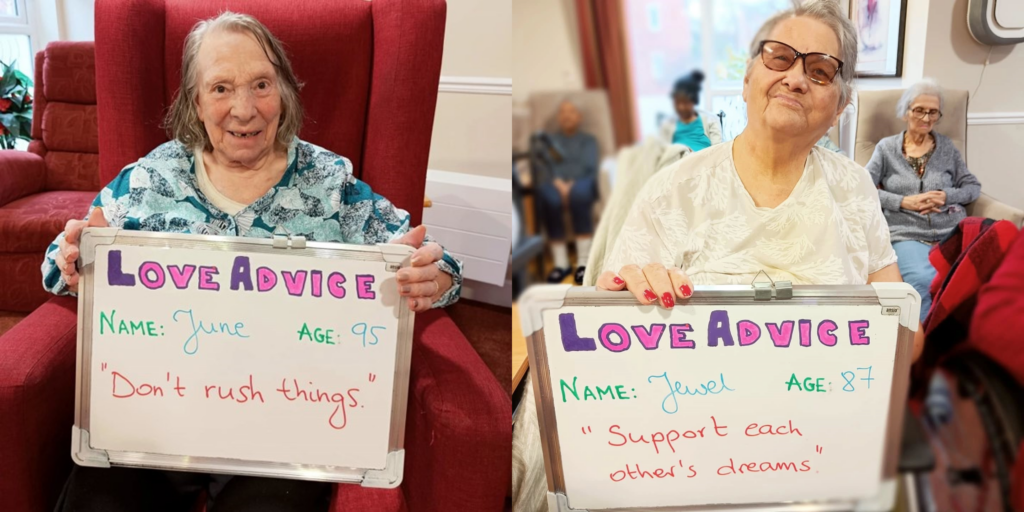 LOVE ADVICE
NAME: June AGE: 95
"Don't rush things."
LOVE ADVICE
NAME: Jewel AGE: 87
"Support each
other's dreams"